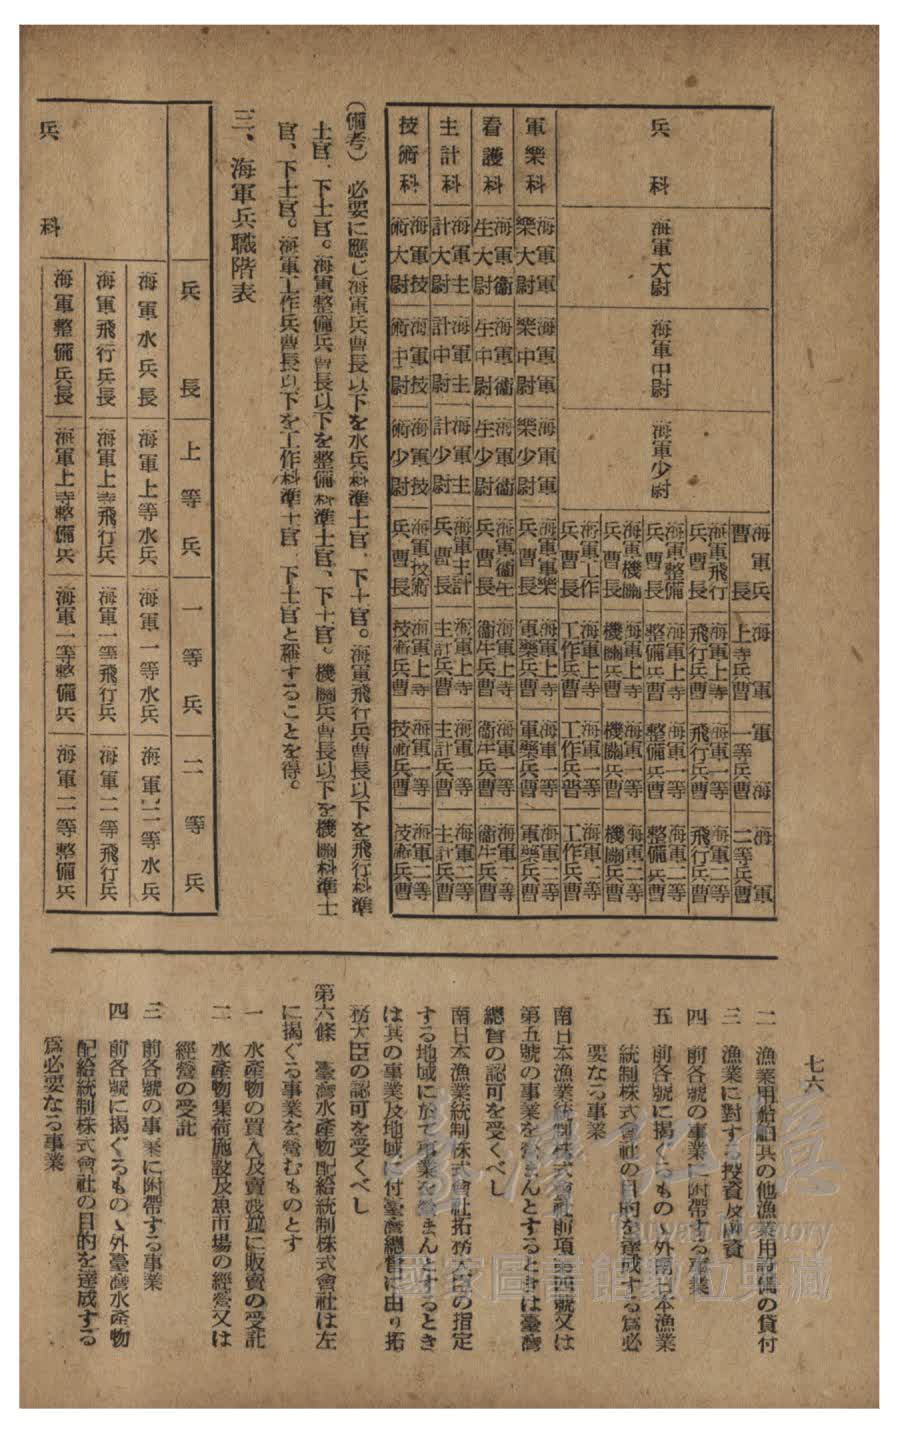 七六
兵科 海軍大尉 海軍中尉 海軍少尉
海軍兵曹長 海軍上等兵曹 海軍一等兵曹 海軍二等兵曹
海軍飛行兵曹長 海軍上等飛行兵曹 海軍一等飛行兵曹 海軍二等飛行兵曹
海軍整備兵曹長 海軍上等整備兵曹 海軍一等整備兵曹 海軍二等整備兵曹
海軍機關兵曹長 海軍上等機關兵曹 海軍一等機關兵曹 海軍二等機關兵曹
海軍工作兵曹長 海軍上等工作兵曹 海軍一等工作兵曹 海軍二等工作兵曹
軍樂科 海軍軍樂大尉 海軍軍樂中尉 海軍軍樂少尉 海軍軍樂兵曹長 海軍上等軍樂兵曹 海軍一等軍樂兵曹 海軍二等軍樂兵曹
看護科 海軍衞生大尉 海軍衞生中尉 海軍衞生少尉 海軍衞生兵曹長 海軍上等衞生兵曹 海軍一等衞生兵曹 海軍二等衞生兵曹
主計科 海軍主計大尉 海軍主計中尉 海軍主計少尉 海軍主計兵曹長 海軍上等主計兵曹 海軍一等主計兵曹 海軍二等主計兵曹
技術科 海軍技術大尉 海軍技術中尉 海軍技術少尉 海軍技術兵曹長 海軍上等技術兵曹 海軍一等技術兵曹 海軍二等技術兵曹
(備考) 必要に應じ海軍兵曹長以下を水兵科準士官、下士官。海軍飛行兵曹長以下を飛行科準
士官、下士官。海軍整備兵曹長以下を整備科準士官、下士官。機關兵曹長以下を機關科準士
官、下士官。海軍工作兵曹長以下を工作科準士官、下士官と稱することを得。
三、海軍兵職階表
兵長 上等兵 一等兵 二等兵
兵科
海軍水兵長 海軍上等水兵 海軍一等水兵 海軍二等水兵
海軍飛行兵長 海軍上等飛行兵 海軍一等飛行兵 海軍二等飛行兵
海軍整備兵長 海軍上等整備兵 海軍一等整備兵 海軍二等整備兵
二 漁業用船舶其の他漁業用設備の貸付
三 漁業に對する投資及融資
四 前各號の事業に附帶する事業
五 前各號に揭ぐるものゝ外南日本漁業
統制株式會社の目的を達成する爲必
要なる事業
南日本漁業統制株式會社前項第四號又は
第五號の事業を營まんとするときは臺灣
總督の認可を受くべし
南日本漁業統制株式會社拓務大臣の指定
する地域に於て事業を營まんとするとき
は其の事業及地域に付臺灣總督に由り拓
務大臣の認可を受くべし
第六條 臺灣水產物配給統制株式會社は左
に揭ぐる事業を營むものとす
一 水產物の買入及賣渡並に販賣の受託
二 水產物集荷施設及魚市場の經營又は
經營の受託
三 前各號の事業に附帶する事業
四 前各號に揭ぐるものゝ外臺灣水產物
配給統制株式會社の目的を達成する
爲必要なる事業
臺灣記憶
Taiwan Memory
國家圖書館數位典藏